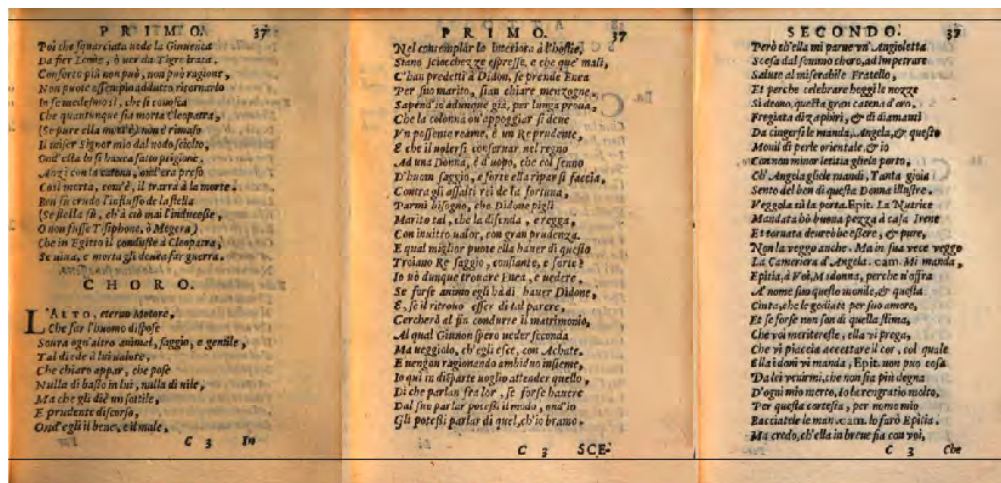 PRIMO. 37
Poi che squarciata uede la Giuuenca
Da fier Leone, ò uer da Tigre irata.
Conforto più non può, non può ragione,
Non puote essempio addutto ritornarlo
In se medesmo: sì, che si conosca
Che quantunque sia morta Cleopatra,
(Se pure ella mort'è) non è rimaso
Il miser Signor mio dal nodo sciolto,
Ond'ella lo si hauea fatto prigione,
Anzi con la catena, ond'era preso
Così morta, com'è, il trarrà à la morte.
Ben fù crudo l'influsso de la stella
(Se stella fù, ch'à ciò mai l'inducesse,
O non fusse Tisiphone, ò Megera)
Che in Egitto il condusse à Cleopatra,
Se uiua, e morta gli deuea far guerra.
CHORO.
L'ALTO, eterno Motore,
Che far l'huomo dispose
Soura ogn'altro animal, saggio, e gentile,
Tal diede à lui ualore,
Che chiaro appar, che pose
Nulla di basso in lui, nulla di uile,
Ma che gli diè un sottile,
E prudente discorso,
Ond'egli il bene, e il male,
C 3 In
PRIMO. 37
Nel contemplar le interiora à l'hostie,
Siano sciocchezze espresse, e che que' mali,
C'han predetti à Didon, se prende Enea
Per suo marito, sian chiare menzogne.
Sapend'io adunque già, per lunga proua,
Che la colonna ou'appoggiar si deue
Vn possente reame, è un Re prudente,
E che il uolersi conseruar nel regno
Ad una Donna, è d'uopo, che col senno
D'huom saggio, e forte ella ripar si faccia,
Contra gli assalti rei de la fortuna,
Parmi bisogno, che Didone pigli
Marito tal, che la difenda, e regga,
Con inuitto ualor, con gran prudenza.
E qual miglior puote ella hauer di questo
Troiano Re saggio, constante, e forte?
Io uò dunque trouare Enea, e uedere,
Se forse animo egli hà di hauer Didone,
E, se il ritrouo esser di tal parere,
Cercherò al fin condurre il matrimonio,
Al qual Giunon spero ueder seconda
Ma ueggiolo, ch'egli esce, con Achate.
E uengan ragionando ambiduo insieme,
Io qui in disparte uoglio attender quello,
Di che parlan fra lor, se forse hauere
Dal suo parlar potessi il modo, ond'io
Gli potessi parlar di quel, ch'io bramo.
C 3 SCE-
SECONDO. 37
Però ch'ella mi parue vn'Angioletta
Scesa dal sommo choro, ad impetrare
Salute al miserabile Fratello,
Et perche celebrare hoggi le nozze
Si deano, questa gran catena d'oro,
Fregiata di zaphiri, & di diamanti
Da cingersi le manda, Angela, & questo
Monil di perle orientale, & io
Con non minor letitia gliele porto,
Ch'Angela gliele mandi, Tanta gioia
Sento del ben di questa Donna illustre.
Veggola sù la porta. Epit. La Nutrice
Mandata hò buona pezza à casa Irene
Et tornata deurebbe essere, & pure,
Non la veggo anche. Ma in sua vece veggo
La Cameriera d'Angela. cam. Mi manda,
Epitia, à Voi, Madonna, perche v'offra
A' nome suo questo monile, & questa
Cinta, che le godiate per suo amore,
Et se forse non son di quella stima,
Che voi meritereste, ella vi prega,
Che vi piaccia accettare il cor, col quale
Ella i doni vi manda, Epit. non puo cosa
Da lei venirmi, che non sia più degna
D'ogni mio merto, io la rengratio molto,
Per questa cortesia, per nome mio
Bacciatele le man. cam. lo farò Epitia.
Ma credo, ch'ella in breue sia con voi,
C 3 Che